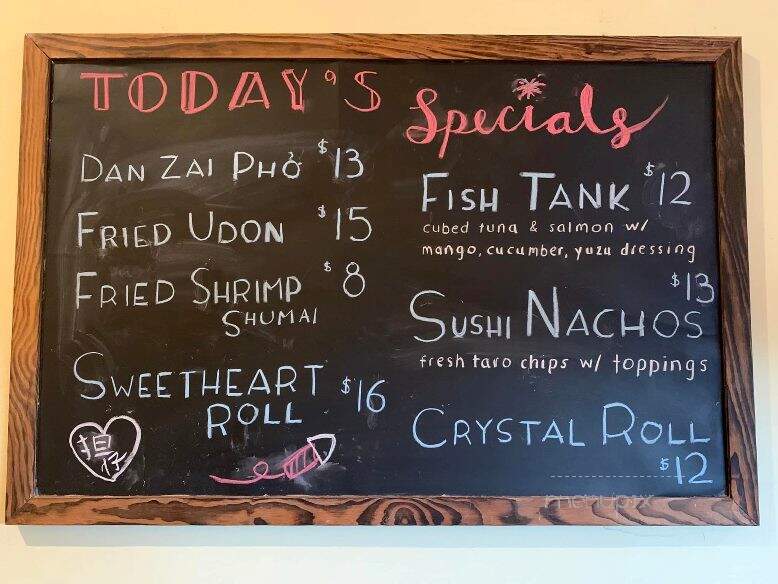 TODAY'S Specials
DAN ZAI PHỞ $13
FRIED UDON $15
FRIED SHRIMP $8
SHUMAI
SWEETHEART $16
ROLL
担
仔
FISH TANK $12
cubed tuna & salmon w/
mango, cucumber, yuzu dressing
$13
SUSHI NACHOS
fresh taro chips w/ toppings
CRYSTAL ROLL
$12